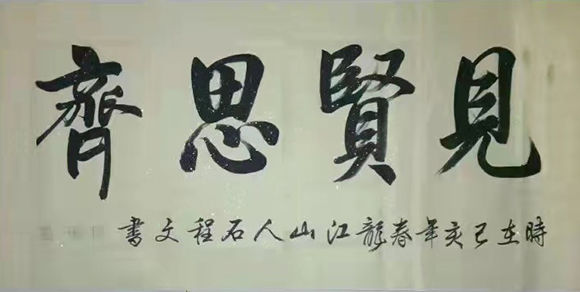 見賢思齊
時在己亥年春龍江山人石程文書